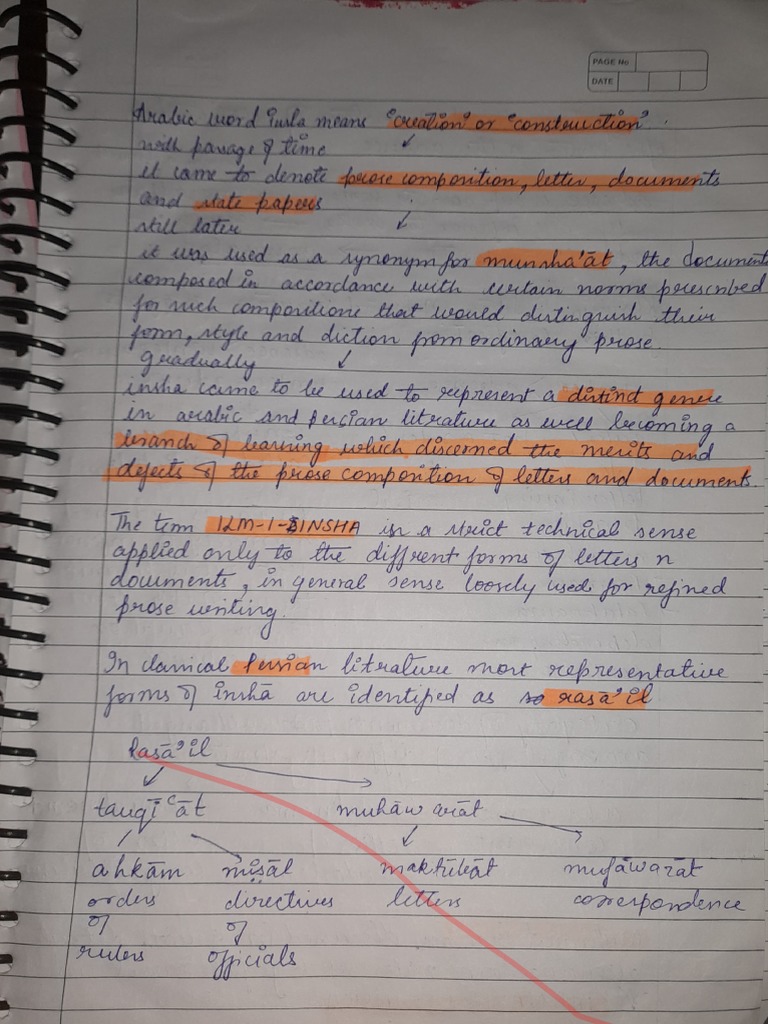 PAGE No
DATE
Arabic word insha means "creation" or "construction".
with passage of time
it came to denote prose composition, letter, documents
and state papers
still later
it was used as a synonym for munsha'āt, the document
composed in accordance with certain norms prescribed
for such compositions that would distinguish their
form, style and diction from ordinary prose.
gradually
insha came to be used to represent a distinct genre
in arabic and persian literature as well becoming a
branch of learning which discerned the merits and
defects of the prose composition of letters and documents.
The term ILM-I-INSHA in a strict technical sense
applied only to the diffrent forms of letters n
documents, in general sense loosely used for refined
prose writing.
In classical Persian literature most representative
forms of inshā are identified as rasā'il
Rasā'il
tauqīcāt muhāwarāt
ahkām misāl maktūbāt mufāwarāt
orders directives letters correspondence
of of
rulers officials